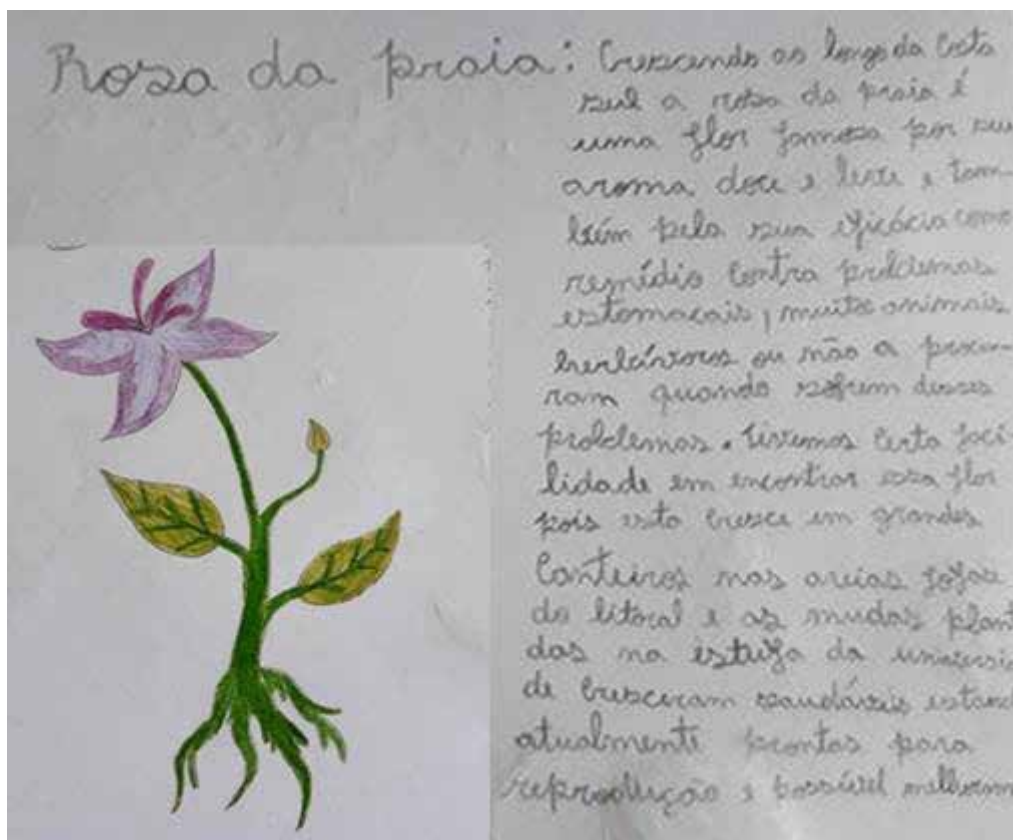 Rosa da praia: Crescendo ao longo da Costa
sul a rosa da praia é
uma flor famosa por seu
aroma doce e leve e tam-
bém pela sua eficácia como
remédio contra problemas
estomacais, muito animais
herbívoros ou não a procu-
ram quando sofrem desses
problemas. tivemos certa faci-
lidade em encontrar essa flor
pois esta cresce em grandes
Canteiros nas areias fofas
do litoral e as mudas plant
das na estufa da universi
de cresceram saudáveis estand
atualmente prontas para
reprodução e possível melhoram